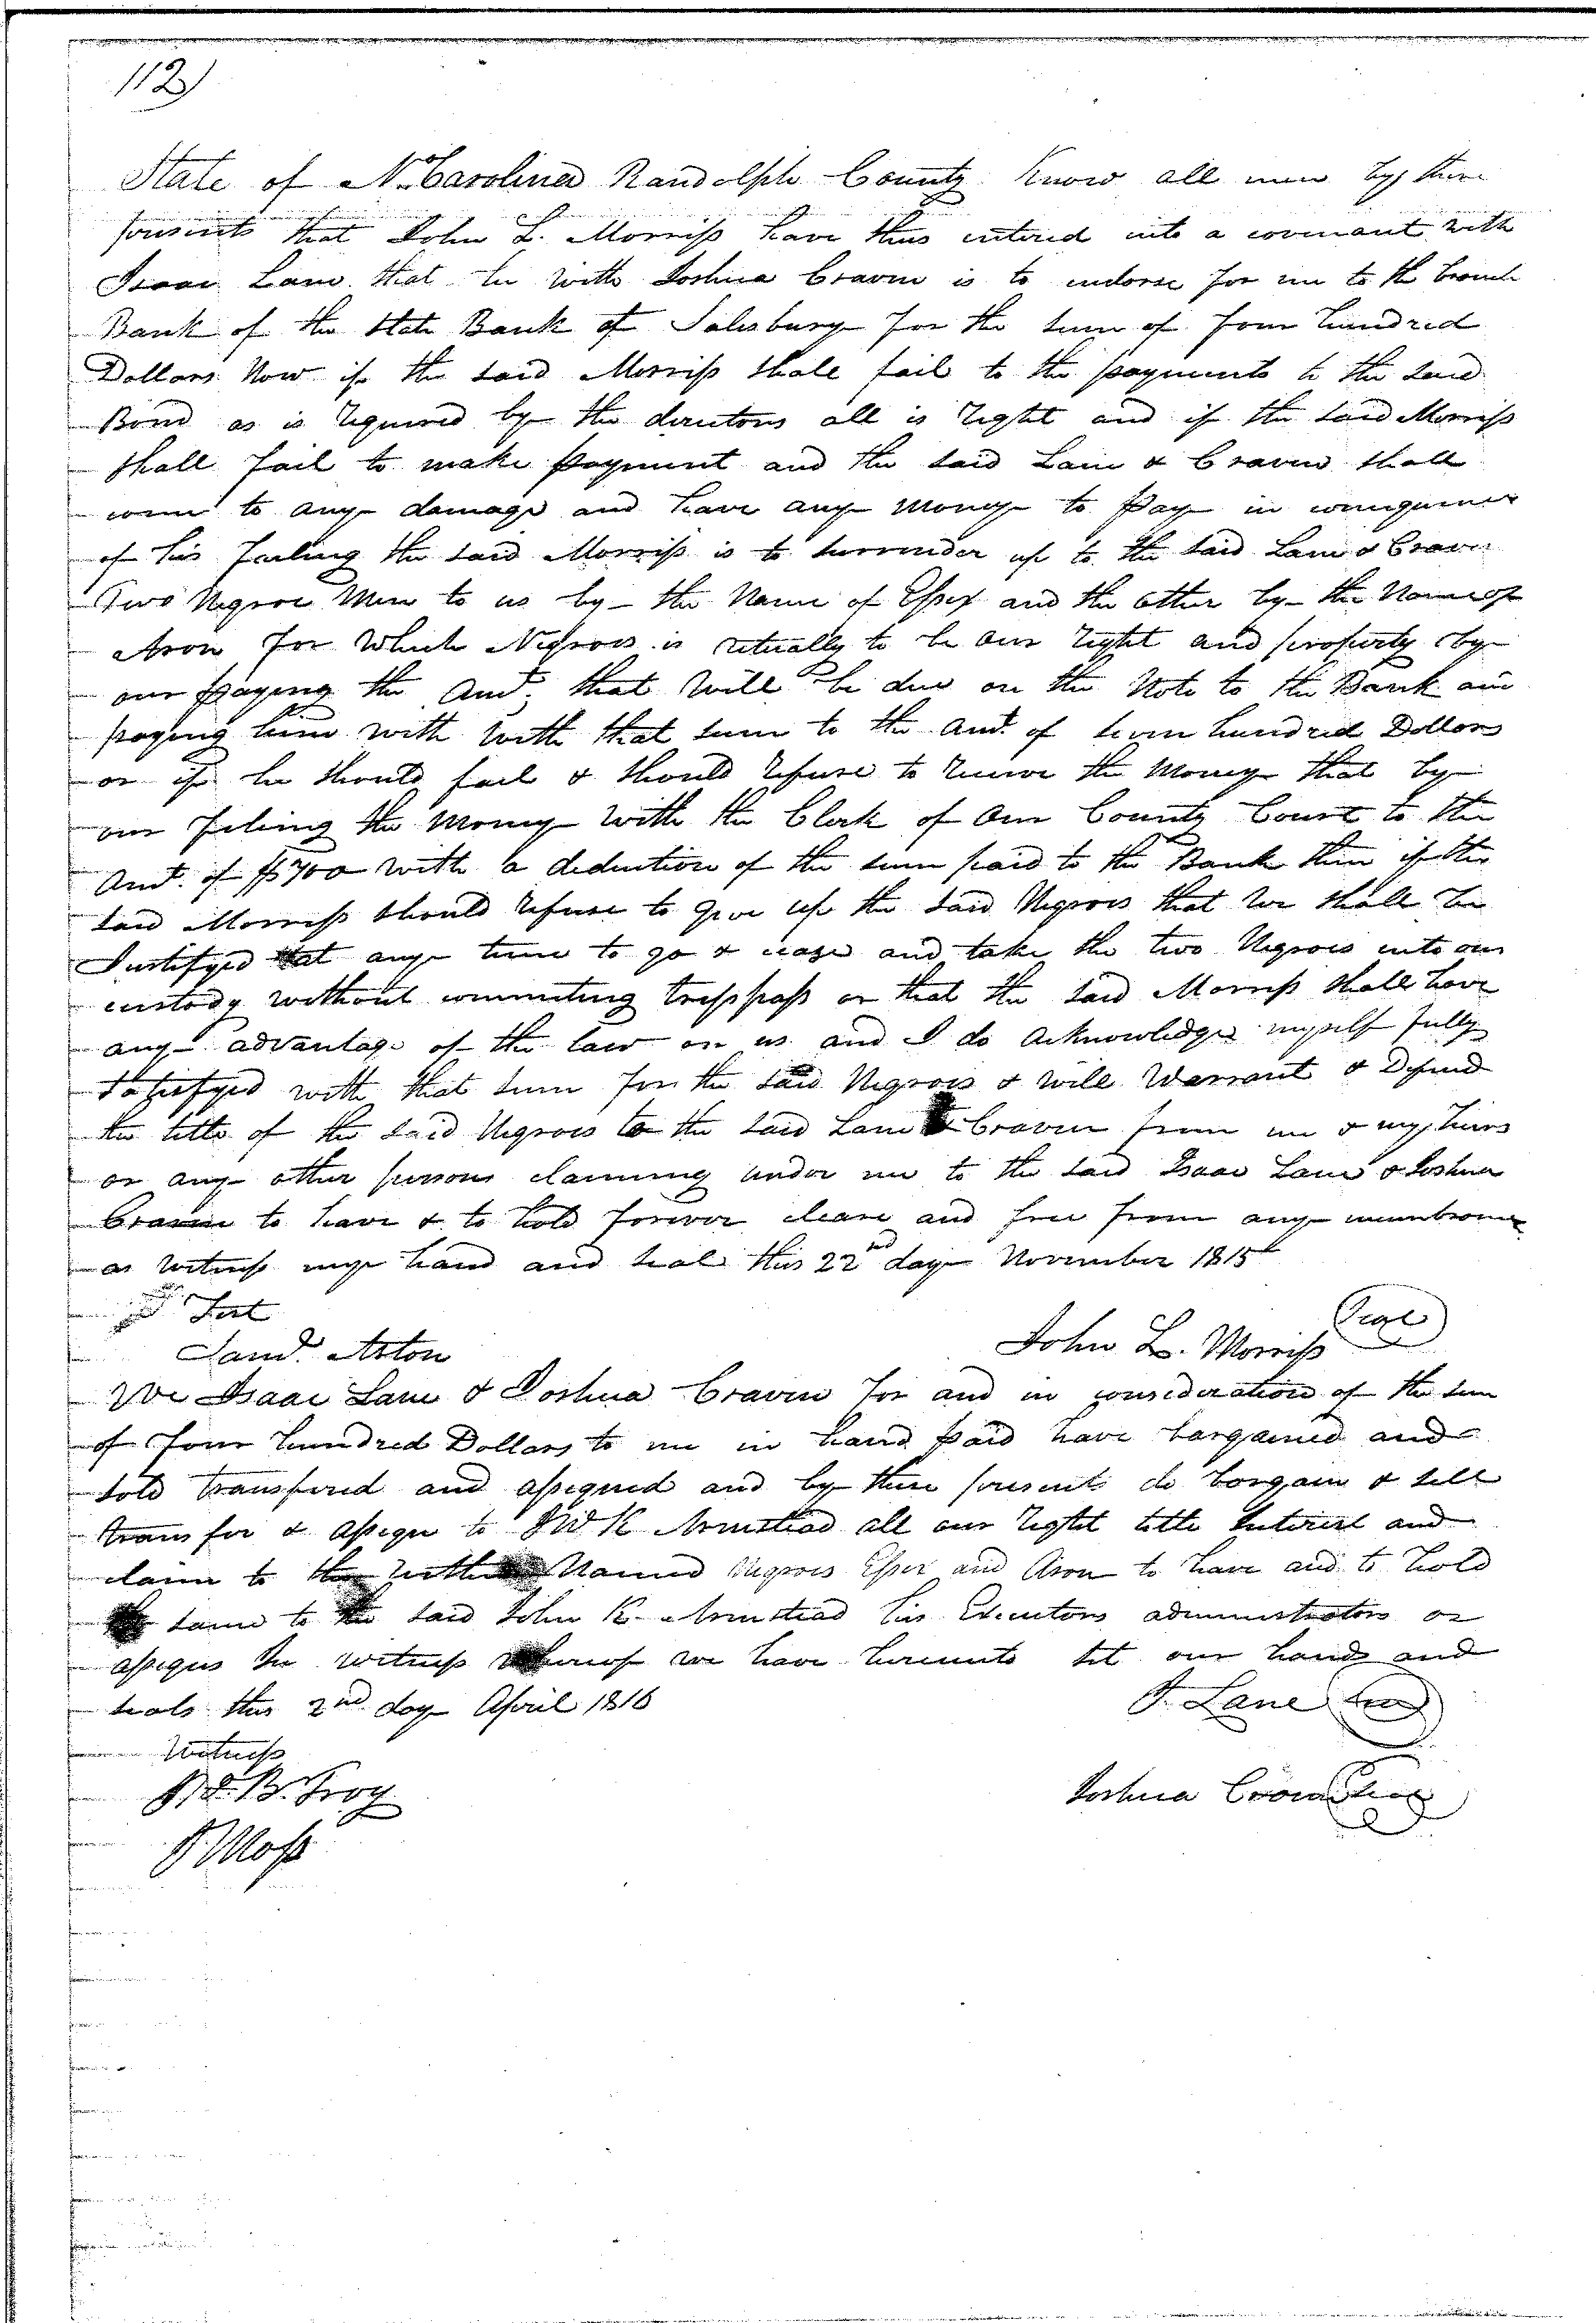 112)
State of N. Carolina Randolph County Know all men by these
presents that John L. Morriss have thus entered into a covenant with
Isaac Lane that he with Joshua Craven is to endorse for me to the branch
Bank of the State Bank of Salisbury for the sum of four hundred
Dollars Now if the said Morriss shale fail to the payments to the said
Bond as is required by the directors all is right and if the said Morriss
shall fail to make payment and the said Lain & Craven shall
come to any damage and have any Money to pay in consequence
of his failing the said Morriss is to surrender up to the said Lane & Craven
Two Negroe Men to us by the Name of Essex and the other by the Name of
Aron for which Negroes is actually to be our right and property by
our paying the Amt. that will be due on the Note to the Bank and
paying him with with that sum to the Amt. of seven hundred Dollars
or if he should fail & should refuse to receive the Money that by
our fileing the Money with the Clerk of Our County Court to the
Amt. of $700 with a deduction of the sum paid to the Bank then if the
said Morriss should refuse to give up the said Negroes that we shall be
Justifyed at any time to go & seaze and take the two Negroes into our
custody without commiting tresspass or that the said Morriss shall have
any advantage of the law on us and I do Acknowledge myself fully
Satisfyed with that sum for the said Negroes & will Warrant & Defend
the title of the said Negroes to the said Lane & Craven from me & my heirs
or any other persons claiming under me to the said Isaac Lane & Joshua
Craven to have & to hold forever cleare and free from any
as witness my hand and seal this 22nd day November 1815
Test
John L. Morriss Seal
Saml. Aston
We Isaac Lane & Joshua Craven for and in consideration of the sum
of four hundred Dollars to me in hand paid have bargained and
sold transfered and assigned and by these presents do bargain & sell
transfer & assign to Jno K Armistead all our right title Interest and
claim to the within Named Negroes Essex and Aron to have and to hold
the same to the said John K. Armistead his Executors administrators or
assigns In witness whereof we have hereunto set our hands and
seals this 2nd day April 1816
I. Lane seal
Witness
B. Troy
Joshua Craven seal
Moss